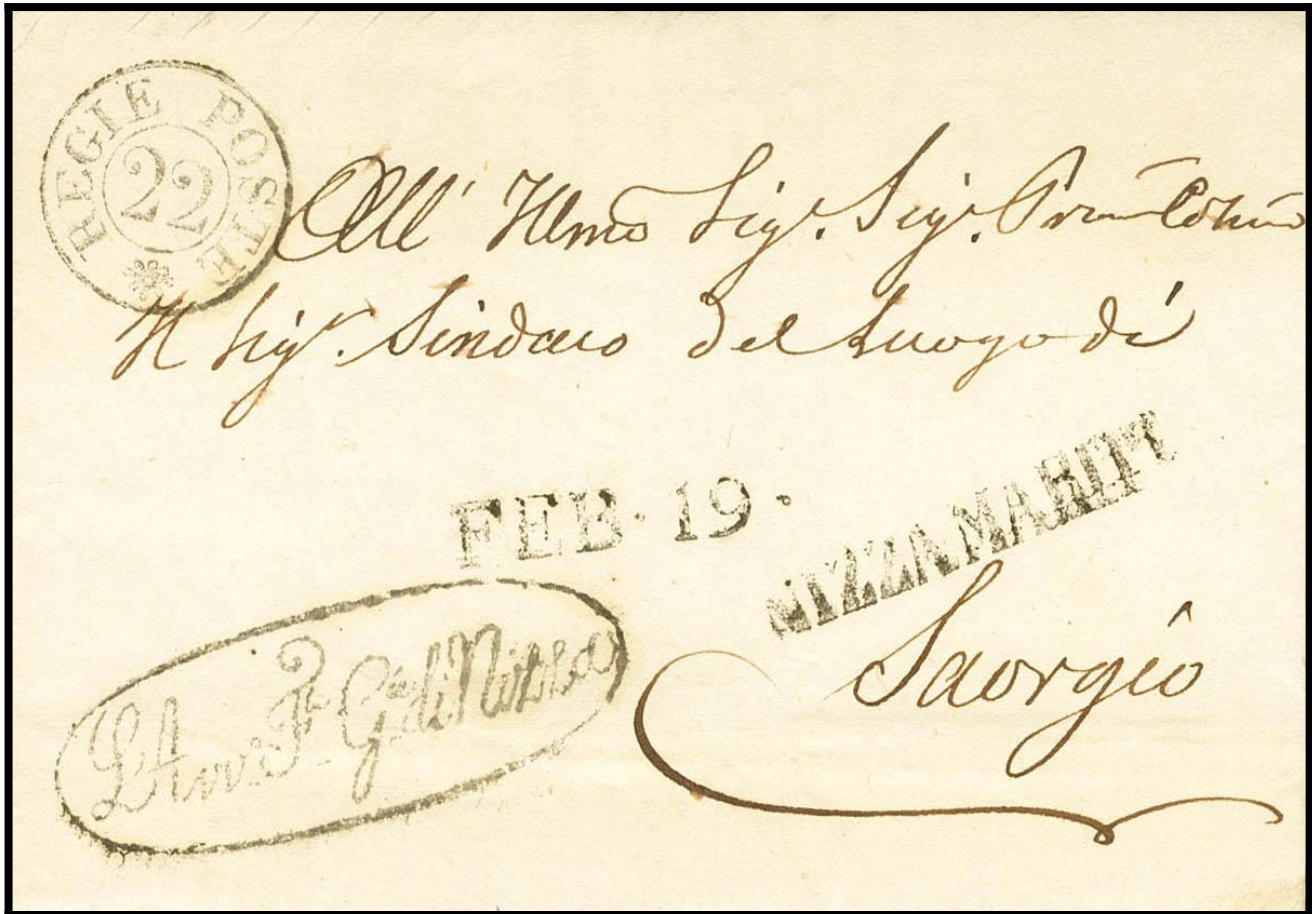 REGIE POSTE
22
All' Illmo Sig.r Sig.r Pron Colmo
Il Sig.r Sindaco del Luogo di
FEB. 19.
NIZZA MARITT
Saorgio
L'Avv. F. G. di Nizza